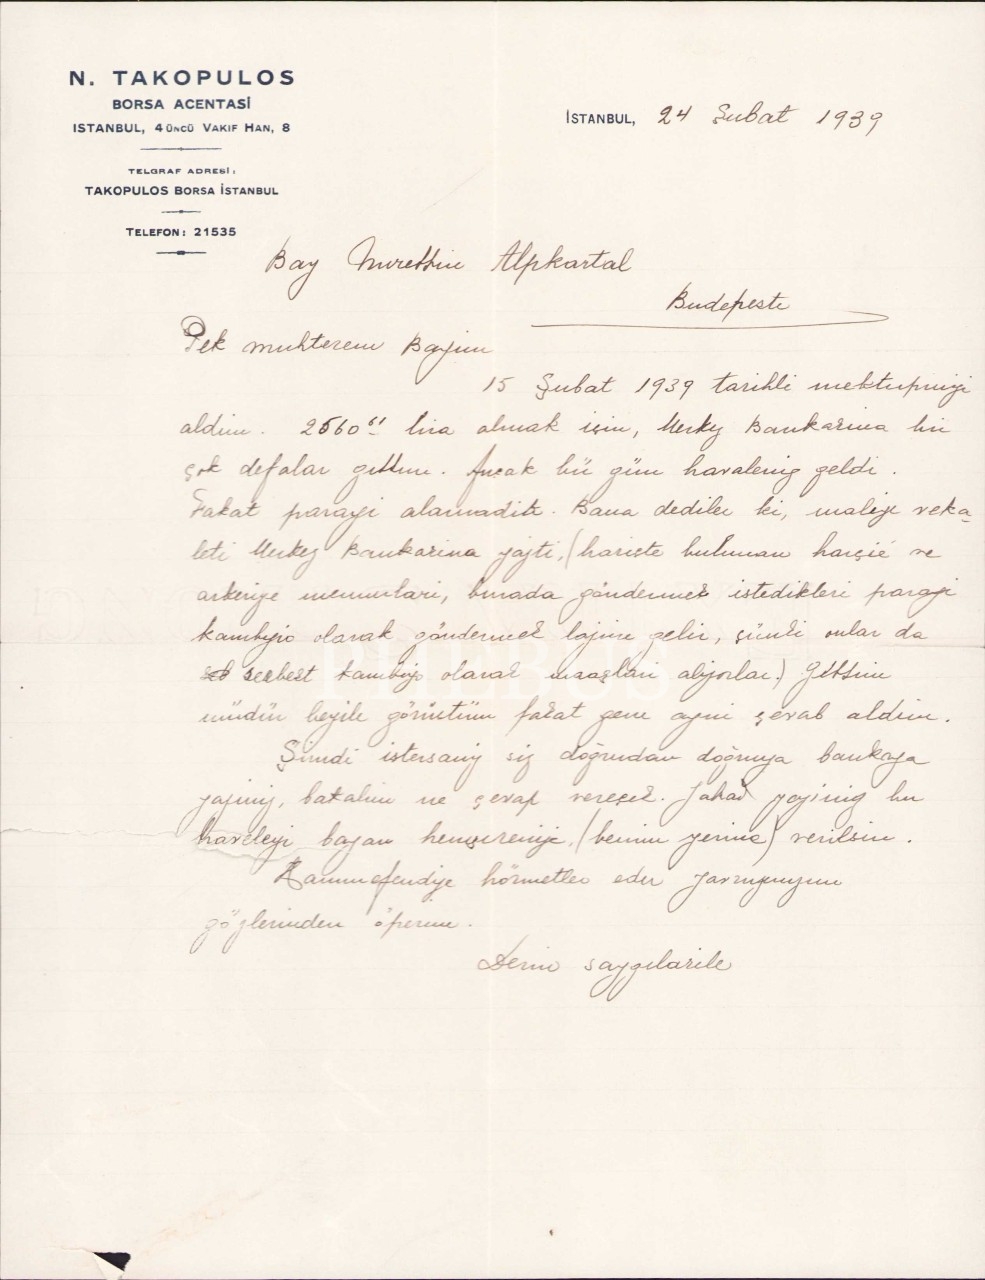 N. TAKOPULOS
BORSA ACENTASİ
ISTANBUL, 4ÜNCÜ VAKIF HAN, 8
TELGRAF ADRESİ:
TAKOPULOS BORSA İSTANBUL
TELEFON: 21535
İSTANBUL, 24 Şubat 1939
Bay Nurettin Alpkartal
Budepeste
Pek muhterem Bayım
15 Şubat 1939 tarihli mektupnizi
aldim. lira almak için, Merkez Bankasina bir
çok defalar gittim. Ancak bü gün havaleniz geldi.
Fakat parayi alamadik. Bana dediler ki, maliye veka-
leti Merkez Bankasina yazti, (hariste bulunan harçié ve
askeriye memurlari, burada göndermek istedikleri parayi
kambiyo olarak göndermek lazim gelir, çünki onlar da
serbest kambiyo olarak maaşlari aliyorlar.) Gittim
müdür beyile görüstüm fakat gene ayni çevab aldim.
Şimdi isterseniz siz doğrudan doğruya bankaya
yaziniz, bakalim ne çevap vereçek. Yahud yaziniz bu
havaleyi bayan hemşirenize, (benim yerime) verilsin.
Hanimefendiye hörmetler eder yavrunuzun
gözlerinden öperim.
Derin saygılarile
PHEBUS